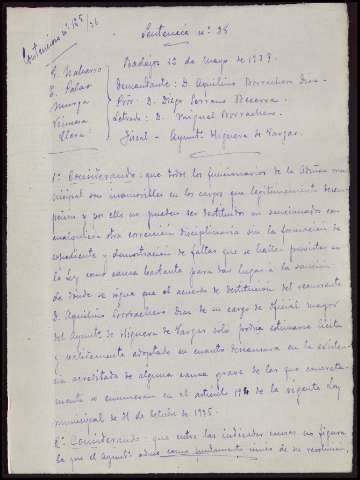 Contencioso nº 125/36
Sentencia nº 28
G. Nabarro
E. Salas
Murga
Primera
Llera
Badajoz 12 de Mayo de 1937.
Demandante: D. Aquilino Borrachero Dias
Pror: D. Diego Serrano Becerra.
Letrado: D. Miguel Borrachero.
Fiscal - Ayuntº Higuera de Vargas.
1º Considerando: que todos los funcionarios de la
municipal son inamovibles en los cargos que legitimamente desem-
peñan y por ello no pueden ser destituidos ni sancionados con
cualquiera otra correccion disciplinaria sin la formacion de
expediente y demostracion de faltas que se hallen previstas en
la Ley como causa bastante para dar lugar a la sancion
de donde se sigue que el acuerdo de destitucion del recurrente
D. Aquilino Borrachero Dias de su cargo de oficial mayor
del Ayuntº de Higuera de Vargas solo podria estimarse licita
y validamente adoptado en cuanto descansara en la existen-
cia acreditada de alguna causa grave de las que concreta-
mente se enumeran en el articulo 196 de la vigente Ley
municipal de 31 de Octubre de 1935.
2º Considerando: que entre las indicadas causas no figura
la que el Ayuntº aduce como fundamento unico de su resolucion,